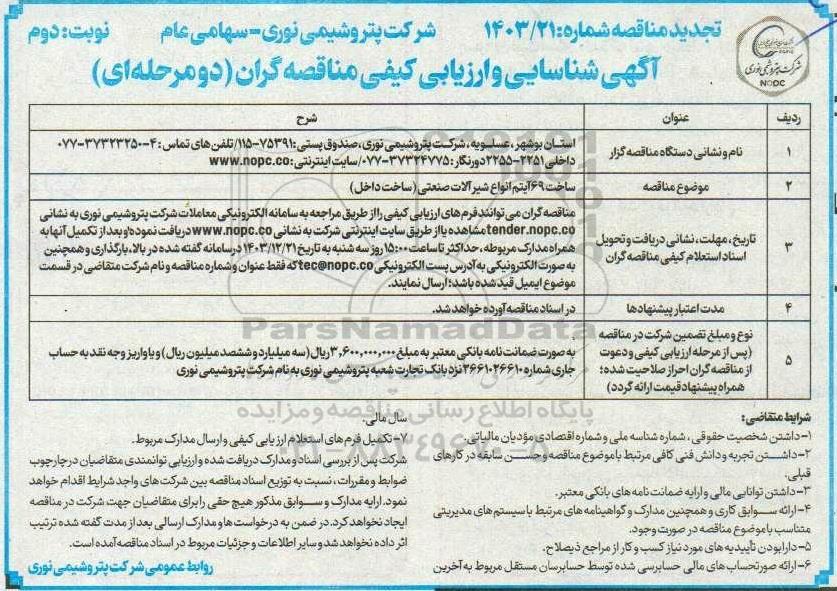 تجدید مناقصه شماره: ۱۴۰۳/۲۱
شرکت پتروشیمی نوری - سهامی عام
نوبت: دوم
آگهی شناسایی و ارزیابی کیفی مناقصه گران (دو مرحله ای)
شرکت پتروشیمی نوری
NOPC
ردیف عنوان شرح
۱ نام و نشانی دستگاه مناقصه گزار
استان بوشهر، عسلویه، شرکت پتروشیمی نوری، صندوق پستی: ۷۵۳۹۱-۱۱۵/ تلفن های تماس: ۴-۳۷۳۲۳۲۵۰-۰۷۷
داخلی ۲۲۵۱-۲۲۵۵ دورنگار: ۳۷۳۲۴۷۷۵-۰۷۷/ سایت اینترنتی: www.nopc.co
۲ موضوع مناقصه
ساخت ۶۹ آیتم انواع شیرآلات صنعتی (ساخت داخل)
۳ تاریخ، مهلت، نشانی دریافت و تحویل
اسناد استعلام کیفی مناقصه گران
مناقصه گران می توانند فرم های ارزیابی کیفی را از طریق مراجعه به سامانه الکترونیکی معاملات شرکت پتروشیمی نوری به نشانی
tender.nopc.co مشاهده یا از طریق سایت اینترنتی شرکت به نشانی www.nopc.co دریافت نموده و بعد از تکمیل آنها به
همراه مدارک مربوطه، حداکثر تا ساعت ۱۵:۰۰ روز سه شنبه به تاریخ ۱۴۰۳/۱۲/۲۱ در سامانه گفته شده در بالا، بارگذاری و همچنین
به صورت الکترونیکی به آدرس پست الکترونیکی tec@nopc.co که فقط عنوان و شماره مناقصه و نام شرکت متقاضی در قسمت
موضوع ایمیل قید شده باشد؛ ارسال نمایند.
۴ مدت اعتبار پیشنهادها
در اسناد مناقصه آورده خواهد شد.
۵ نوع و مبلغ تضمین شرکت در مناقصه
(پس از مرحله ارزیابی کیفی و دعوت
از مناقصه گران احراز صلاحیت شده؛
همراه پیشنهاد قیمت ارائه گردد)
به صورت ضمانت نامه بانکی معتبر به مبلغ ۳,۶۰۰,۰۰۰,۰۰۰ ریال (سه میلیارد و ششصد میلیون ریال) و یا واریز وجه نقد به حساب
جاری شماره ۳۶۶۱۰۲۶۶۱۰ نزد بانک تجارت شعبه پتروشیمی نوری به نام شرکت پتروشیمی نوری
ParsNamadData
پایگاه اطلاع رسانی مناقصه و مزایده
شرایط متقاضی:
۱- داشتن شخصیت حقوقی، شماره شناسه ملی و شماره اقتصادی مؤدیان مالیاتی.
۲- داشتن تجربه و دانش فنی کافی مرتبط با موضوع مناقصه و حسن سابقه در کارهای
قبلی.
۳- داشتن توانایی مالی و ارایه ضمانت نامه های بانکی معتبر.
۴- ارائه سوابق کاری و همچنین مدارک و گواهینامه های مرتبط با سیستم های مدیریتی
متناسب با موضوع مناقصه در صورت وجود.
۵- دارا بودن تأییدیه های مورد نیاز کسب و کار از مراجع ذیصلاح.
۶- ارائه صورتحساب های مالی حسابرسی شده توسط حسابرسان مستقل مربوط به آخرین
سال مالی.
۷- تکمیل فرم های استعلام ارزیابی کیفی و ارسال مدارک مربوط.
شرکت پس از بررسی اسناد و مدارک دریافت شده و ارزیابی توانمندی متقاضیان در چارچوب
ضوابط و مقررات، نسبت به توزیع اسناد مناقصه بین شرکت های واجد شرایط اقدام خواهد
نمود. ارایه مدارک و سوابق مذکور هیچ حقی را برای متقاضیان جهت شرکت در مناقصه
ایجاد نخواهد کرد. در ضمن به درخواست ها و مدارک ارسالی بعد از مدت گفته شده ترتیب
اثر داده نخواهد شد و سایر اطلاعات و جزئیات مربوط در اسناد مناقصه آمده است.
روابط عمومی شرکت پتروشیمی نوری